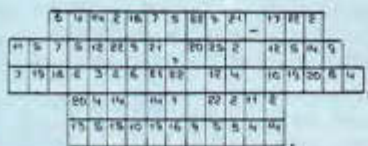 6 4 14 2 18 7 5 22 9 21 – 17 22 2
11 5 7 5 12 22 9 21 , 20 23 2 12 5 14 9
7 19 18 6 3 2 6 21 22 12 4 10 19 20 8 4
20 4 14 14 1 22 2 11 2
13 5 15 10 19 16 4 5 5 4 14 .